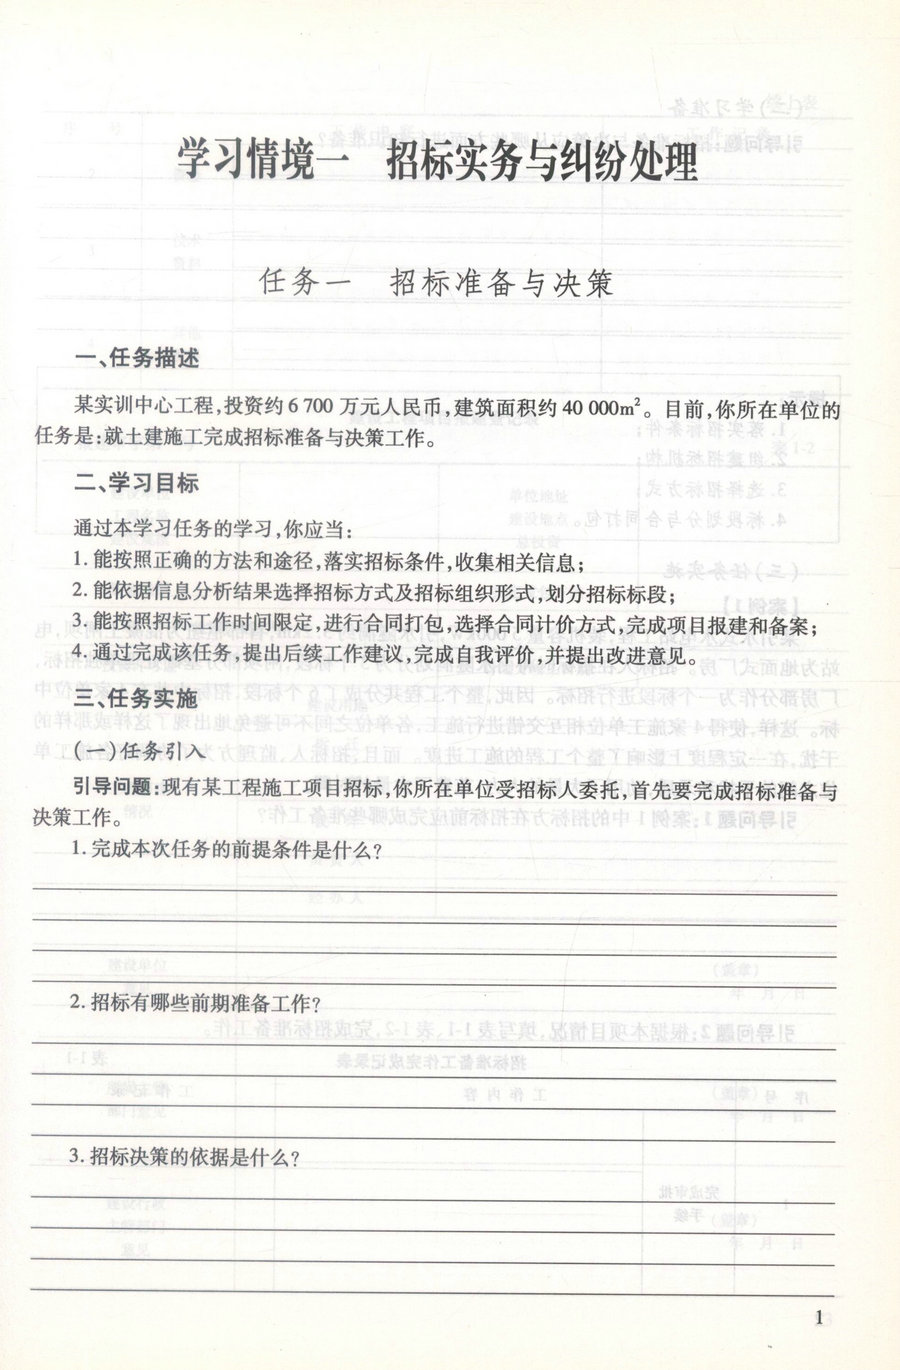 学习情境一　招标实务与纠纷处理
任务一　招标准备与决策
一、任务描述
某实训中心工程,投资约 6 700 万元人民币,建筑面积约 40 000m²。目前,你所在单位的
任务是:就土建施工完成招标准备与决策工作。
二、学习目标
通过本学习任务的学习,你应当:
1. 能按照正确的方法和途径,落实招标条件,收集相关信息;
2. 能依据信息分析结果选择招标方式及招标组织形式,划分招标标段;
3. 能按照招标工作时间限定,进行合同打包,选择合同计价方式,完成项目报建和备案;
4. 通过完成该任务,提出后续工作建议,完成自我评价,并提出改进意见。
三、任务实施
(一)任务引入
引导问题:现有某工程施工项目招标,你所在单位受招标人委托,首先要完成招标准备与
决策工作。
1. 完成本次任务的前提条件是什么?
2. 招标有哪些前期准备工作?
3. 招标决策的依据是什么?
1